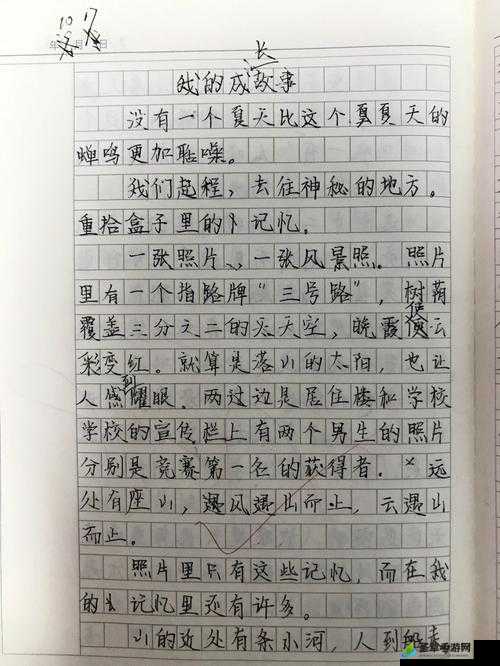 10 17
年 月 日
我的成长故事
没有一个夏天比这个夏夏天的
蝉鸣更加聒噪。
我们起程，去往神秘的地方。
重拾盒子里的记忆。
一张照片、一张风景照。照片
里有一个指路牌“三号路”，树荫
覆盖三分之二的天空，晚霞使云
彩变红。就算是落山的太阳，也让
人感到耀眼。两边是居住楼和学校
学校的宣传栏上有两个男生的照片
分别是竞赛第一名的获得者。远
处有座山，遇风遇山而止，云遇山
而止。
照片里只有这些记忆，而在我
的记忆里还有许多。
山的近处有条小河，人到